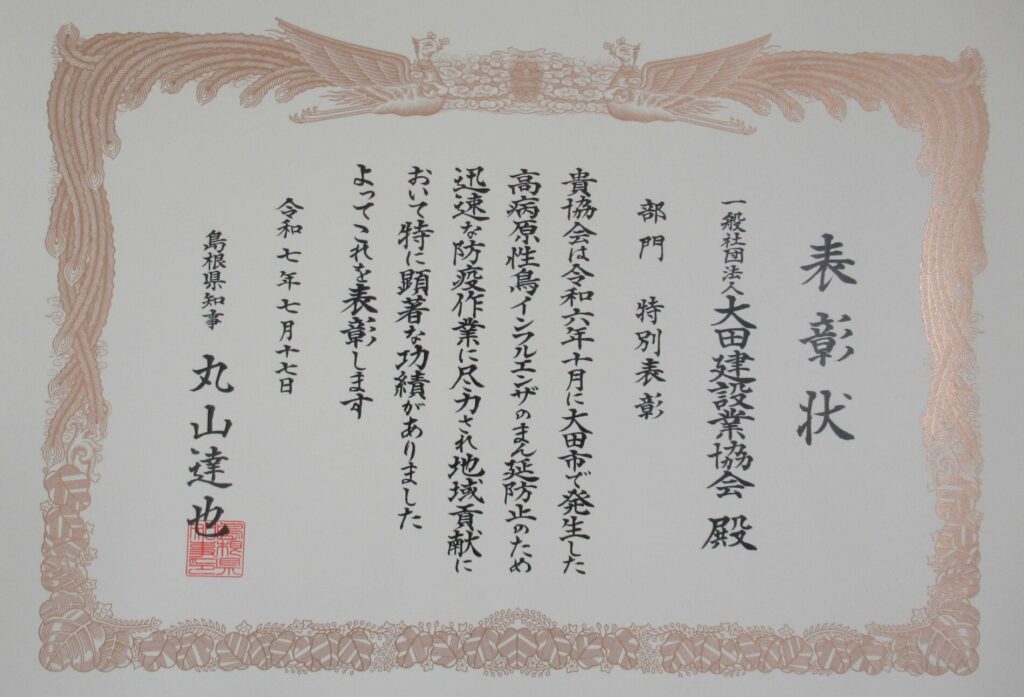 表彰状
一般社団法人 大田建設業協会 殿
部門 特別表彰
貴協会は令和六年十月に大田市で発生した
高病原性鳥インフルエンザのまん延防止のため
迅速な防疫作業に尽力され地域貢献に
おいて特に顕著な功績がありました
よってこれを表彰します
令和七年七月十七日
島根県知事 丸山達也
島根県知事之印